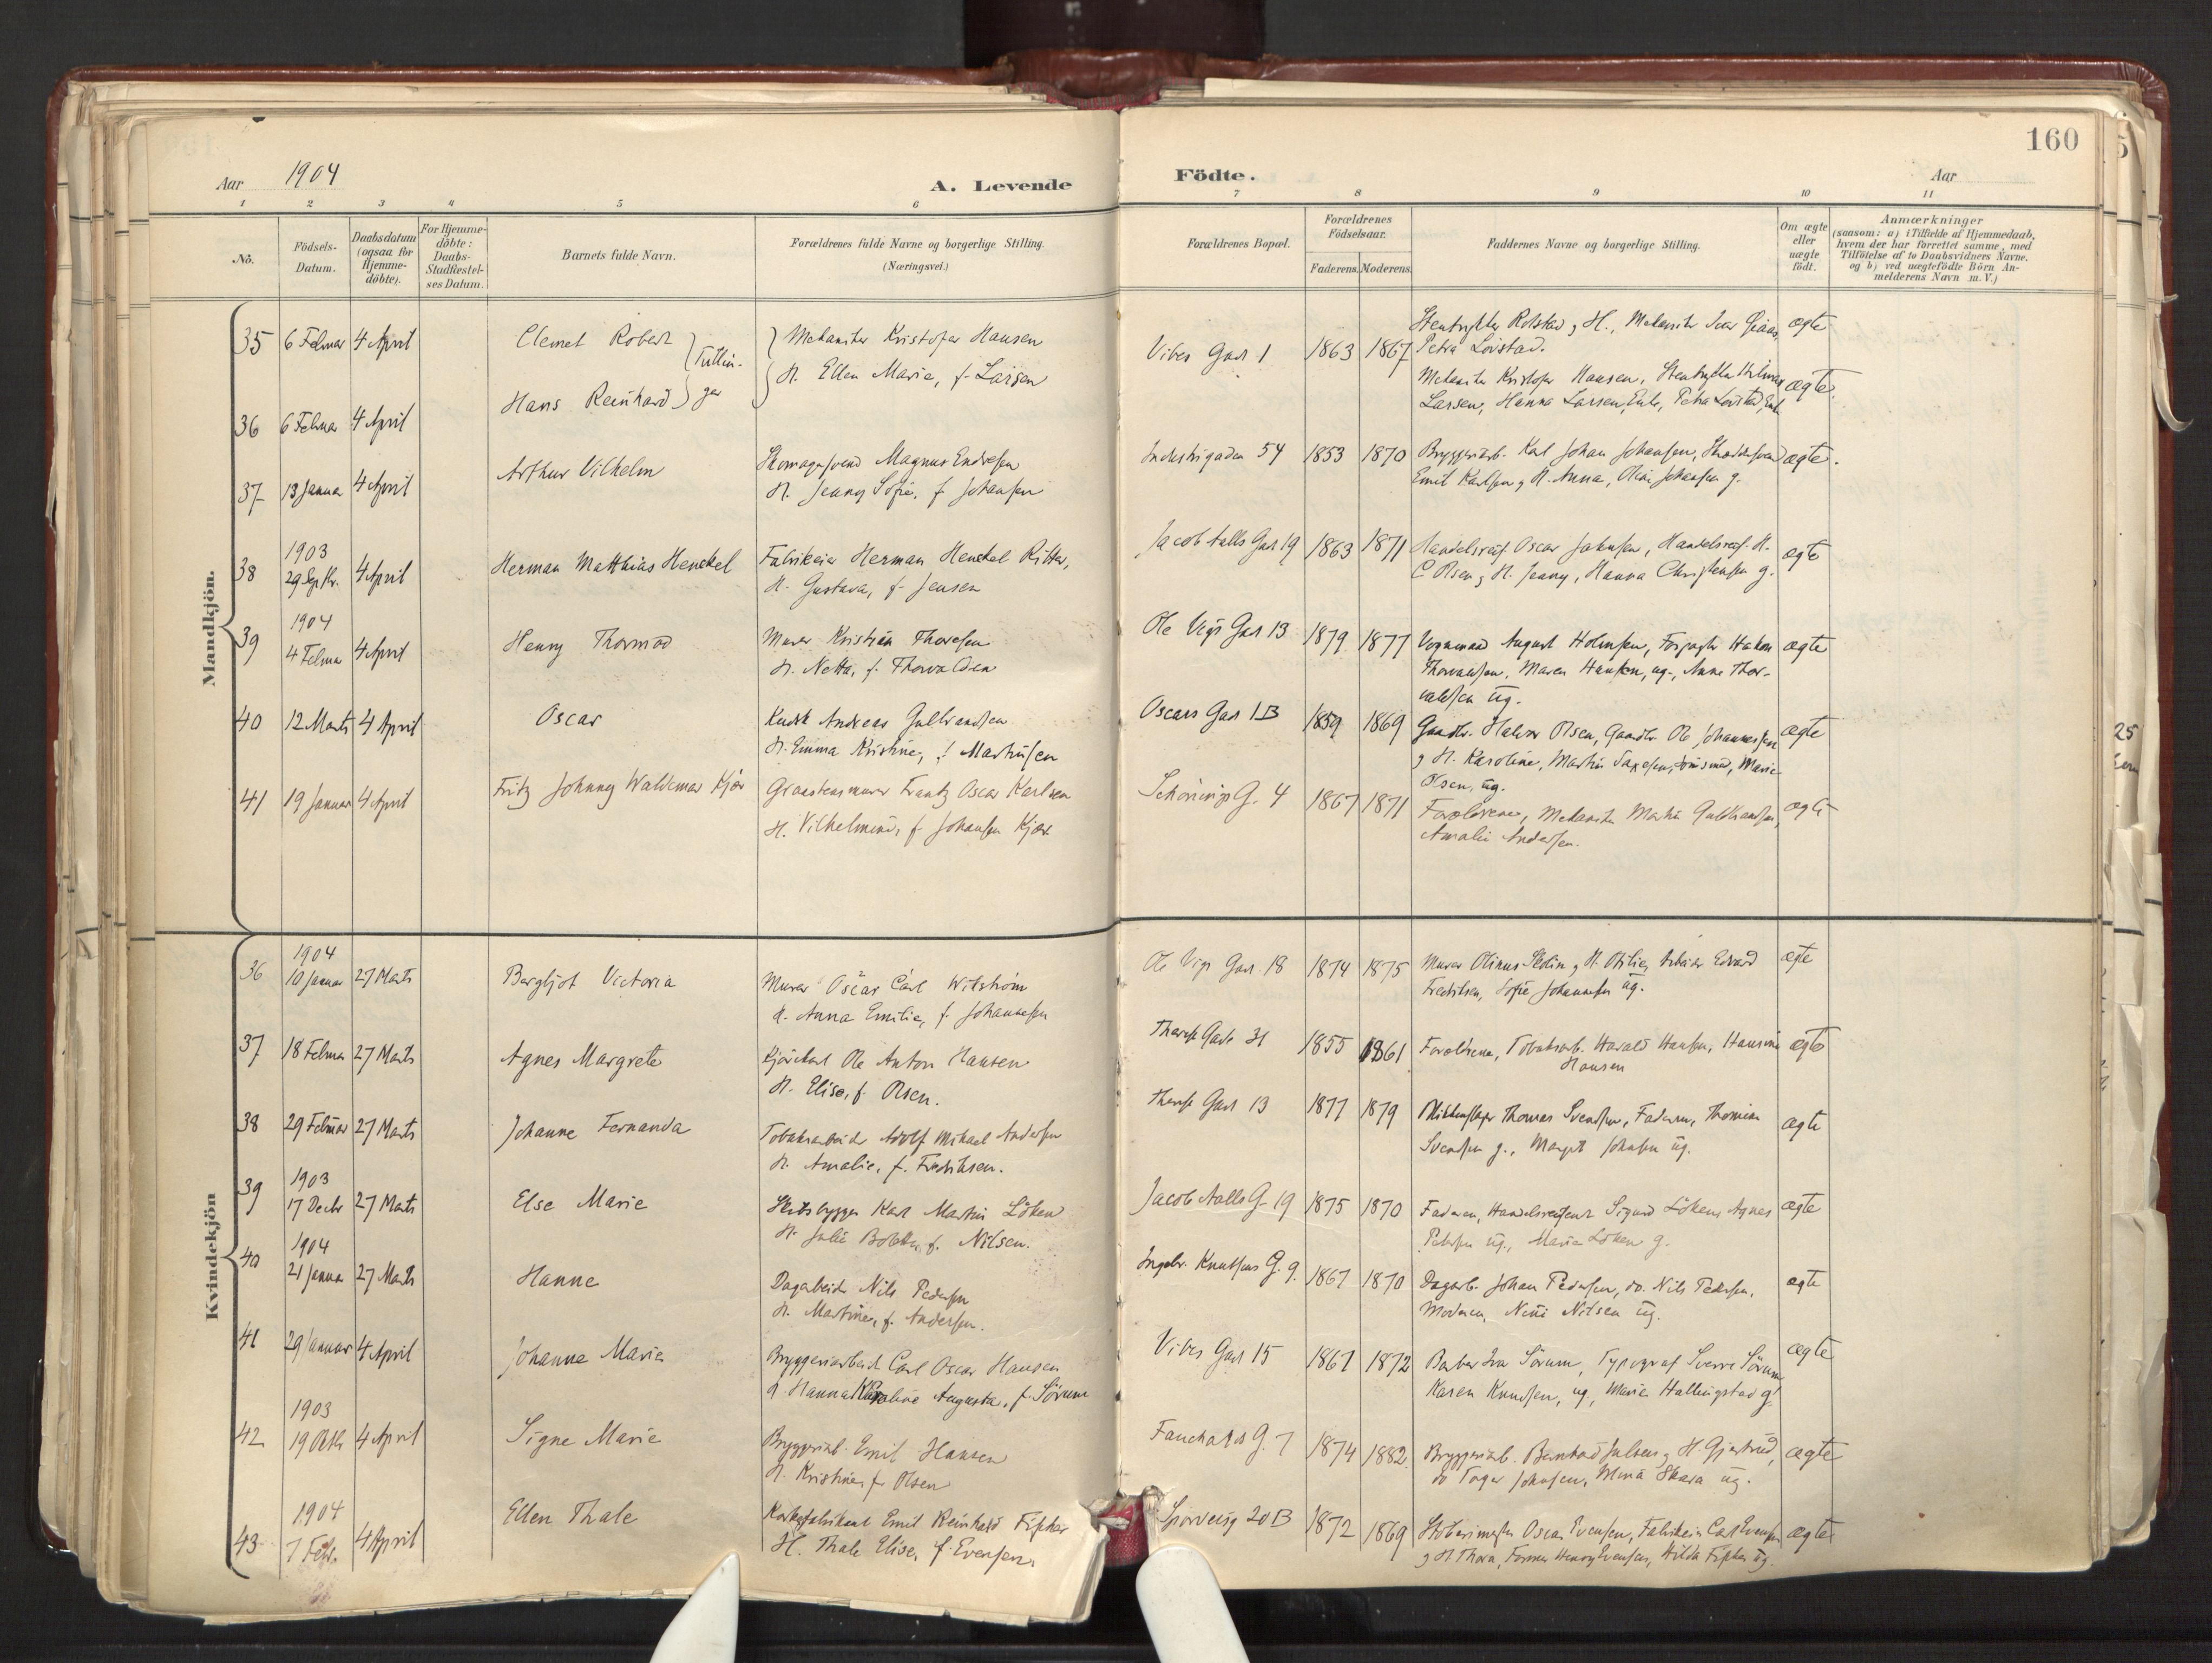 160
Aar 1904
A. Levende Födte.
Aar
1 2 3 4 5 6 7 8 9 10 11
No.
Födsels-
Datum.
Daabsdatum
(ogsaa for
Hjemme-
döbte).
For Hjemme-
döbte:
Daabs-
Stadfæstel-
ses Datum.
Barnets fulde Navn.
Forældrenes fulde Navne og borgerlige Stilling.
(Næringsvei.)
Forældrenes Bopæl.
Forældrenes
Födselsaar.
Faderens. Moderens.
Faddernes Navne og borgerlige Stilling.
Om ægte
eller
uægte
födt.
Anmærkninger
(saasom: a) i Tilfælde af Hjemmedaab,
hvem der har forrettet samme, med
Tilföielse af to Daabsvidners Navne.
og b) ved uægtefödte Börn An-
melderens Navn m. V.)
Mandkjön.
35 6 Februar 4 April Clemet Robert Mekaniker Kristofer Hansen Vibes Gad 1 1863 1867 ægte
Petra Loistad.
Tvillin-
ger
H. Ellen Marie, f. Larsen
36 6 Februar 4 April Hans Reinhard Mekaniker Kristofer Hansen, ægte
Larsen, Hanna Larsen, Enke, Petra Loistad, Enk.
37 13 Januar 4 April Arthur Vilhelm Skomagersvend Magnus Endresen Industrigaden 54 1853 1870 Bryggeriarb. Karl Johan Johansen, ægte.
H. Jenny Sofie, f. Johansen Emil Karlsen og H. Anna, Johansen g.
1903
38 29 Septbr. 4 April Herman Matthias Henckel Fabrikeier Herman Henckel Ritter, Jacob Aalls Gad 19 1863 1871 Handelsreis. Oscar Johnsen, Handelsreis. H. ægte
H. Gustava, f. Jensen C. Olsen og H. Jenny, Hanna Christensen g.
1904
39 4 Februar 4 April Henry Thormod Murer Kristian Thoresen Ole Vigs Gad 13 1879 1877 Vognmand August Holmsen, Hakon ægte
H. Netta, f. Thorvaldsen Thorvaldsen, Maren Hansen, ug., Anna Thor-
valdsen ug.
40 12 Marts 4 April Oscar Kudsk Andreas Gulbrandsen Oscars Gad 1B 1859 1869 Gaardbr. Halvor Olsen, Gaardbr. Ole Johannessen ægte
H. Emma Kristine, f. Martinsen og H. Karoline, Martin Marie
Olsen, ug.
41 19 Januar 4 April Fritz Johnny Waldemar Kjær Graastensmurer Frantz Oscar Karlsen Schönings G. 4 1867 1871 Forældrene, Mekaniker Martin Guldbrandsen, ægte
H. Vilhelmine, f. Johansen Kjær Amalie Andersen.
Kvindekjön
1904
36 10 Januar 27 Marts Bergljot Victoria Murer Oscar Carl Witström Ole Vigs Gad 18 1874 1875 Murer Olinus og H. Otilie, Arbeider Edvard ægte
H. Anna Emilie, f. Johannesen Fredriksen, Sofie Johannesen ug.
37 18 Februar 27 Marts Agnes Margrete Kjørekarl Ole Anton Hansen Therese Gade 31 1855 1861 Forældrene, Tobaksarb. Harald Hansen, Hansine ægte
H. Elise, f. Olsen. Hansen
38 29 Februar 27 Marts Johanne Fernanda Tobaksarbeider Adolf Mikael Andersen Therese Gad 13 1877 1879 Thomas Svendsen, Faderen, Thomine ægte
H. Amalie, f. Fredriksen. Svendsen g., Margit Johnsen ug.
1903
39 17 Decbr 27 Marts Else Marie Skibsbygger Karl Martin Löken Jacob Aalls G. 19 1875 1870 Faderen, Handelsreisende Sigurd Löken, Agnes ægte
H. Julie f. Nilsen. Petersen ug., Marie Löken g.
1904
40 21 Januar 27 Marts Hanne Dagarbeider Nils Pedersen Ingebr. Knudsens G. 9. 1867 1870 Dagarb. Johan Pedersen, do. Nils Pedersen, ægte
H. Martine, f. Andersen. Moderen, Nilsen ug.
41 29 Januar 4 April Johanne Marie Bryggeriarbeider Carl Oscar Hansen Vibes Gad 15 1867 1872 Barber Sörum, Typograf Sverre Sörum ægte
H. Hanna Karoline Augusta, f. Sörum Karen Knudsen, ug, Marie Hallingstad g.
1903
42 19 Oktbr 4 April Signe Marie Bryggeriarb. Emil Hansen Fauchalds G. 7 1874 1882. Bryggeriarb. Bernhard og H. Gjertrud, ægte
H. Kristine, f. Olsen do Johnsen, Mina Skara ug.
1904
43 7 Febr. 4 April Ellen Thale Korkefabrikant Emil Reinhard Fischer Sporveisg 20B 1872 1869 Støberimester Oscar Evensen, Fabrikeier Carl Evensen ægte
H. Thale Elise, f. Evensen. og H Thora, Former Henry Evensen, Hilda Fischer ug.
25